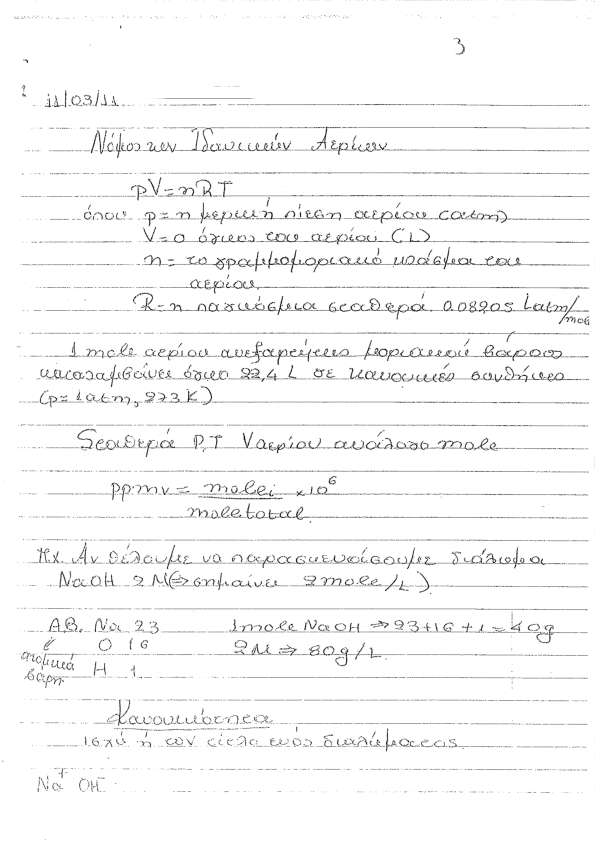 3
11/03/11
Νόμος των Ιδανικών Αερίων
pV=nRT
όπου p=η μερική πίεση αερίου (atm)
V=ο όγκος του αερίου (L)
n=το γραμμομοριακό κλάσμα του
αερίου
R=η παγκόσμια σταθερά 0.08205 Latm/mol
1 mole αερίου ανεξαρτήτως μοριακού βάρους
καταλαμβάνει όγκο 22,4 L σε κανονικές συνθήκες
(p=1atm, 273K)
Σταθερά P,T Vαερίου ανάλογο mole
ppmv = molei x10⁶
mole total
πχ. Αν θέλουμε να παρασκευάσουμε διάλυμα
NaOH 2M(⇒σημαίνει 2mole/L)
Α.Β. Na 23 1mole NaOH ⇒23+16+1=40g
O 16 2M ⇒ 80g/L
ατομικά
βάρη H 1
Κανονικότητα
ισχύ ή τον τίτλο ενός διαλύματος
Na⁺ OH⁻